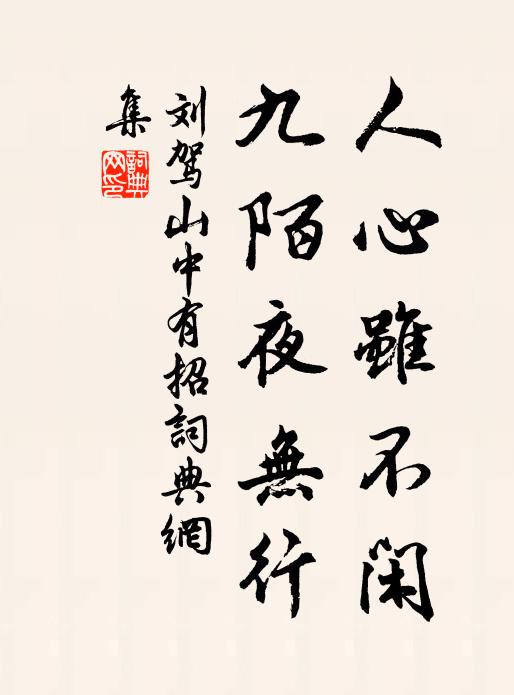 人心雖不閑
九陌夜無行
刘駕山中有招詞典網
集
詞典网印